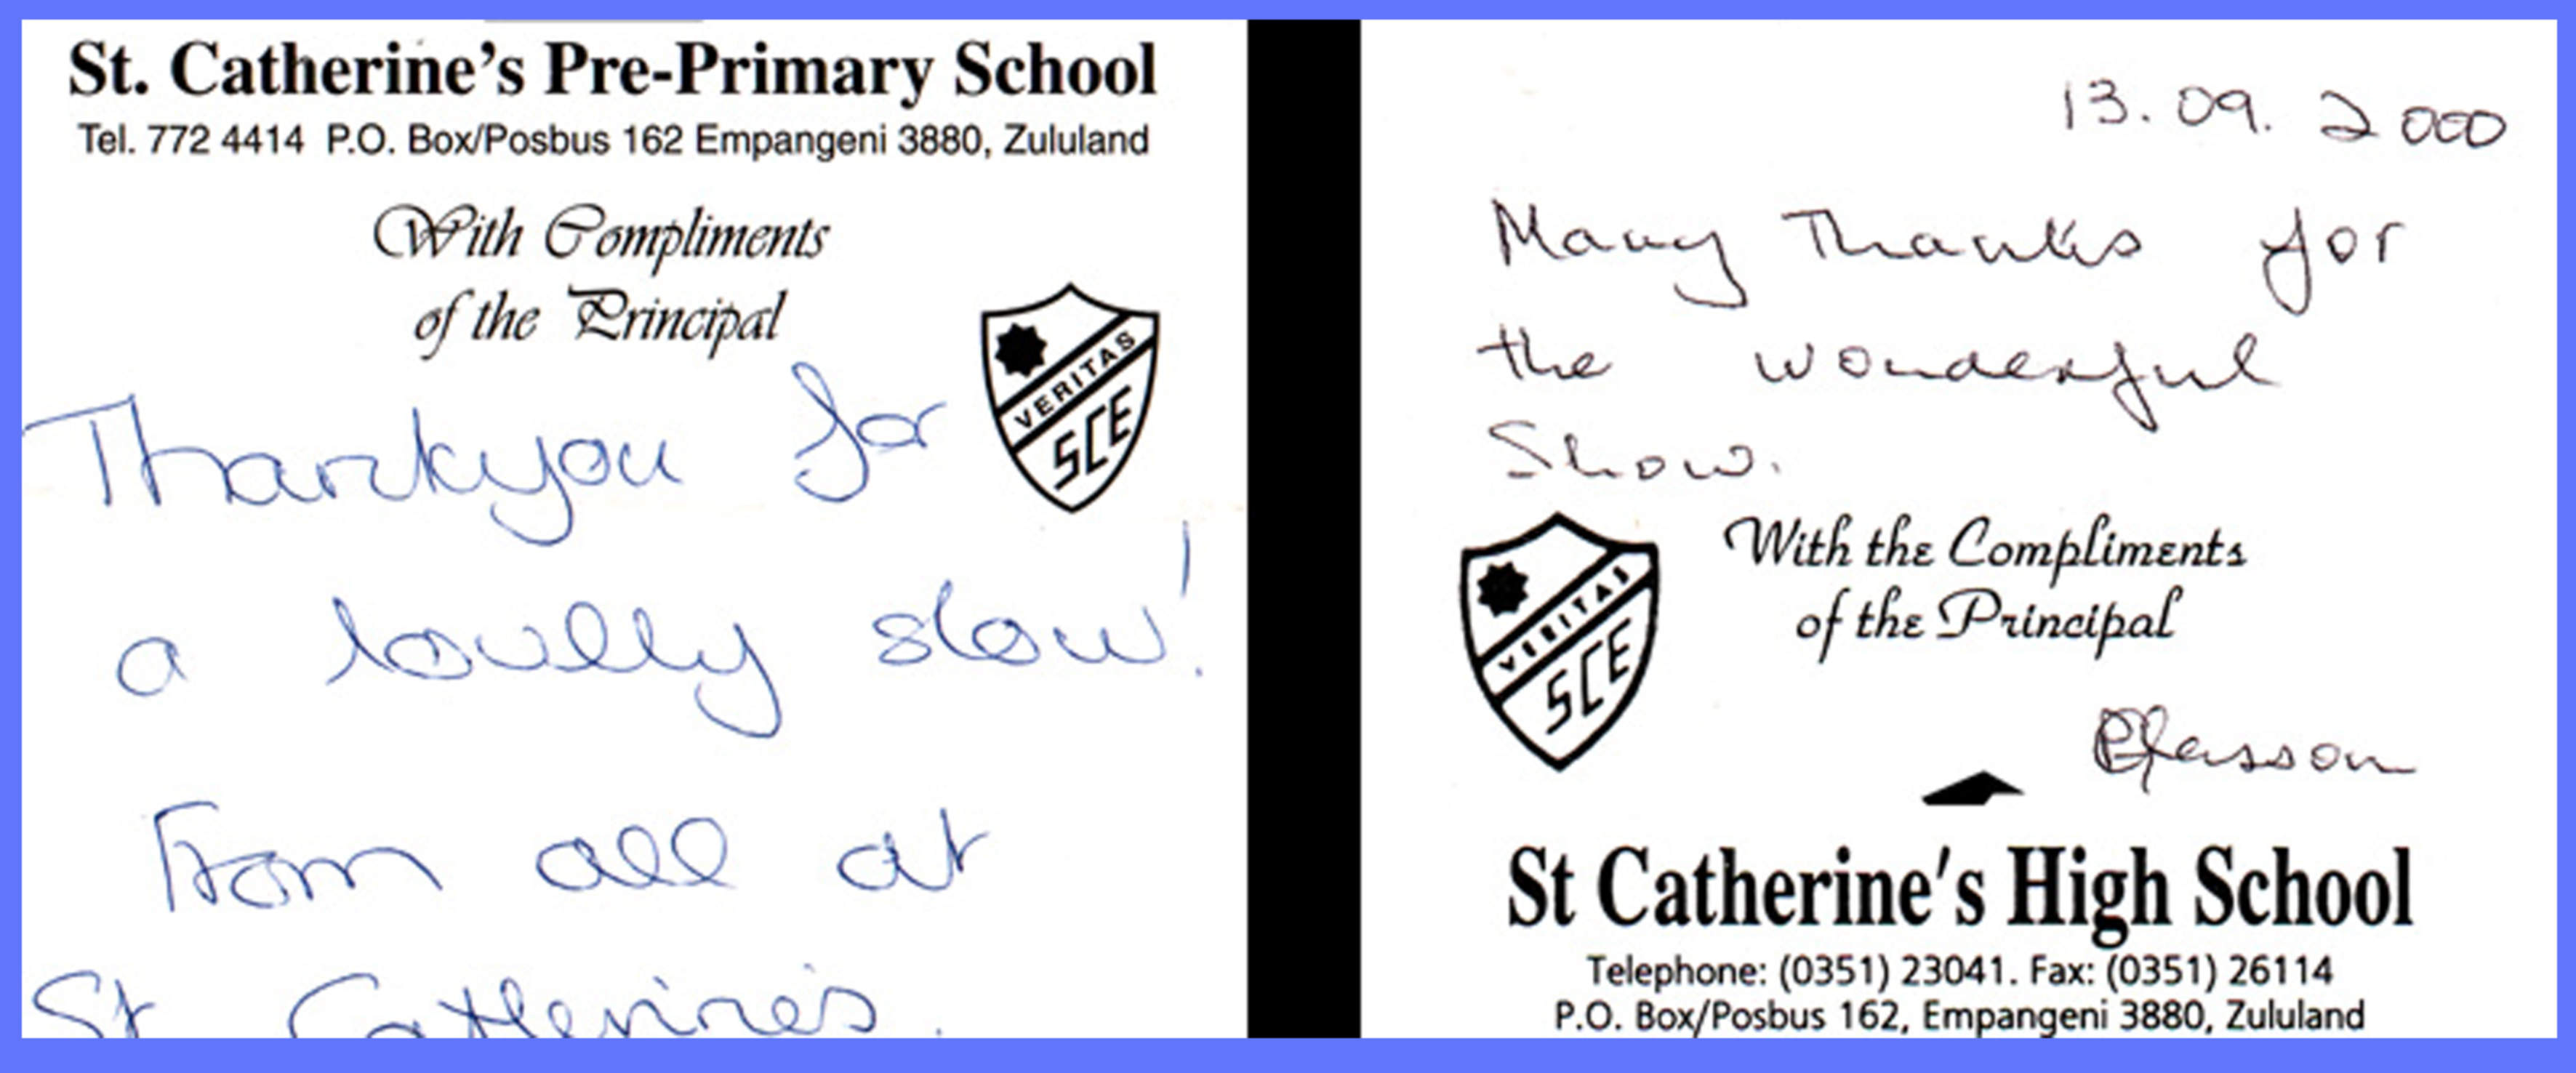 St. Catherine's Pre-Primary School
Tel. 772 4414 P.O. Box/Posbus 162 Empangeni 3880, Zululand
With Compliments
of the Principal
VERITAS
SCE
Thankyou for
a lovelly show!
From all at
St Catherines.
13.09.2000
Many Thanks for
the wonderful
Show.
VERITAS
SCE
With the Compliments
of the Principal
St Catherine's High School
Telephone: (0351) 23041. Fax: (0351) 26114
P.O. Box/Posbus 162, Empangeni 3880, Zululand